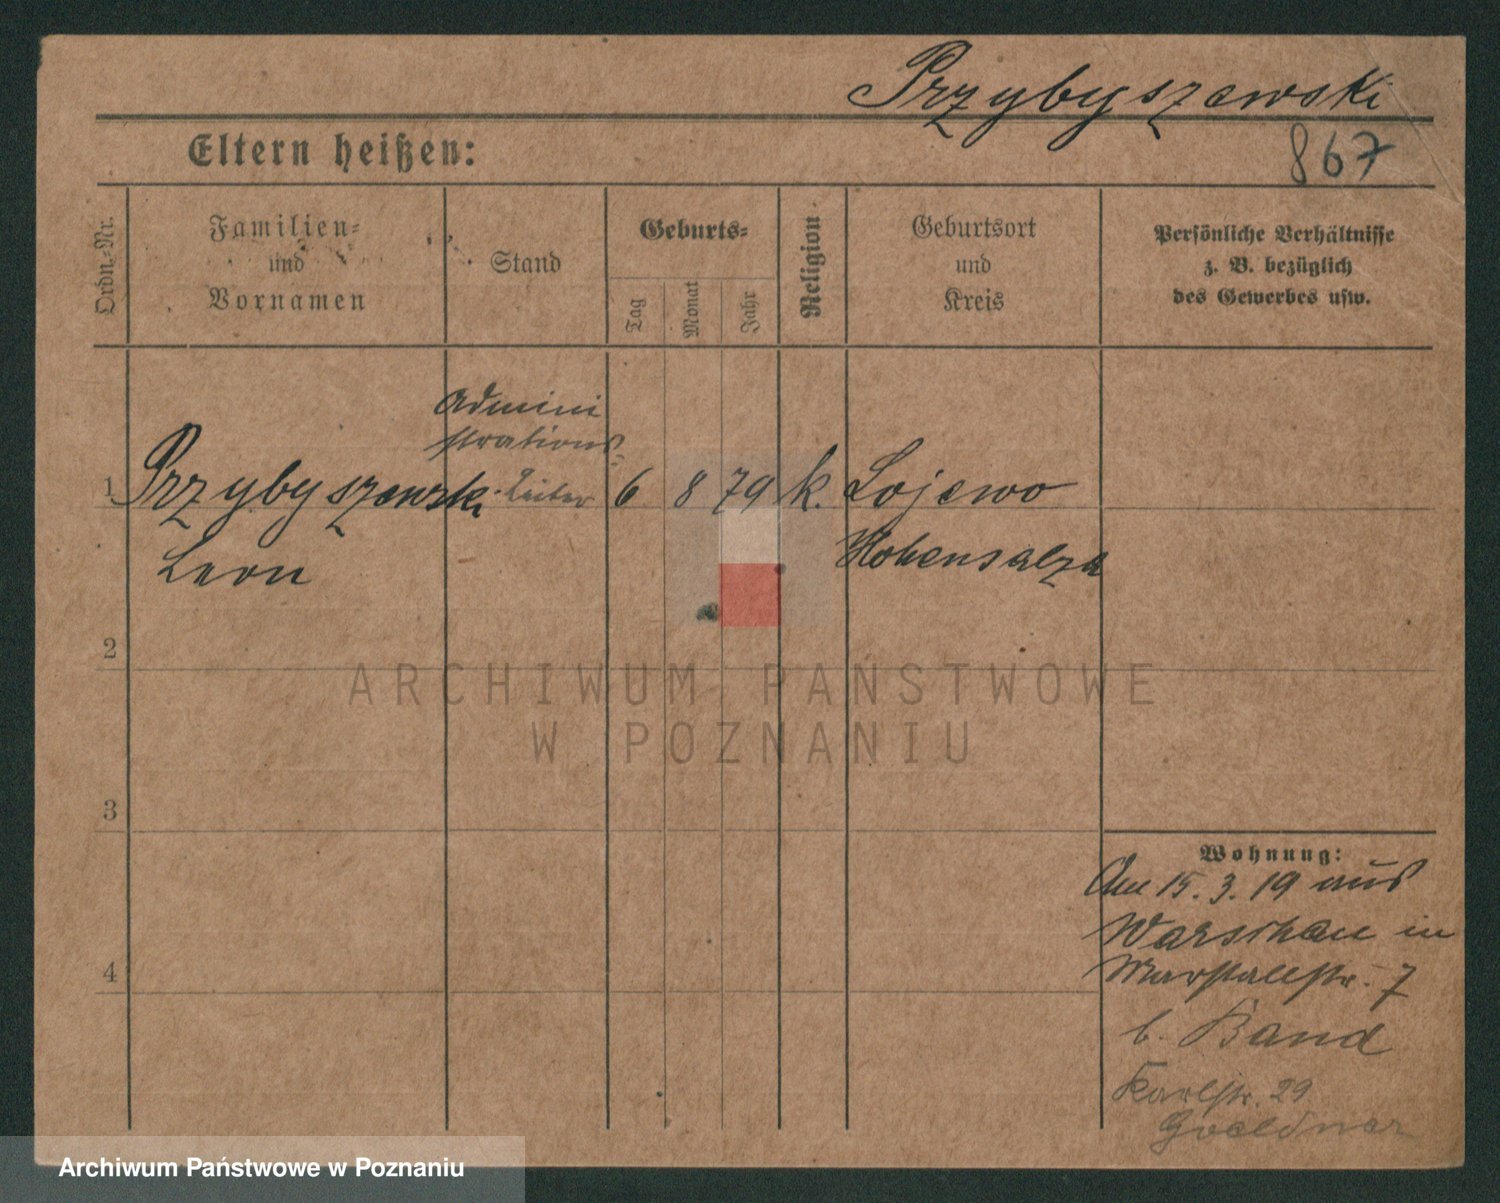 Przybyszewski
867
Eltern heißen:
Ordn.-Nr.
Familien-
und
Vornamen
Stand
Geburts-
Tag
Monat
Jahr
Religion
Geburtsort
und
Kreis
Persönliche Verhältnisse
z. B. bezüglich
des Gewerbes usw.
Admini
strations-
1 Przybyszewski Leiter 6 8 79 k. Lojewo
Leon Hohensalza
2
3
4
Wohnung:
Am 15.3.19 aus
Warschau in
Marstallstr. 7
b. Band
Karlstr. 29
Goeldner
ARCHIWUM PAŃSTWOWE
W POZNANIU
Archiwum Państwowe w Poznaniu